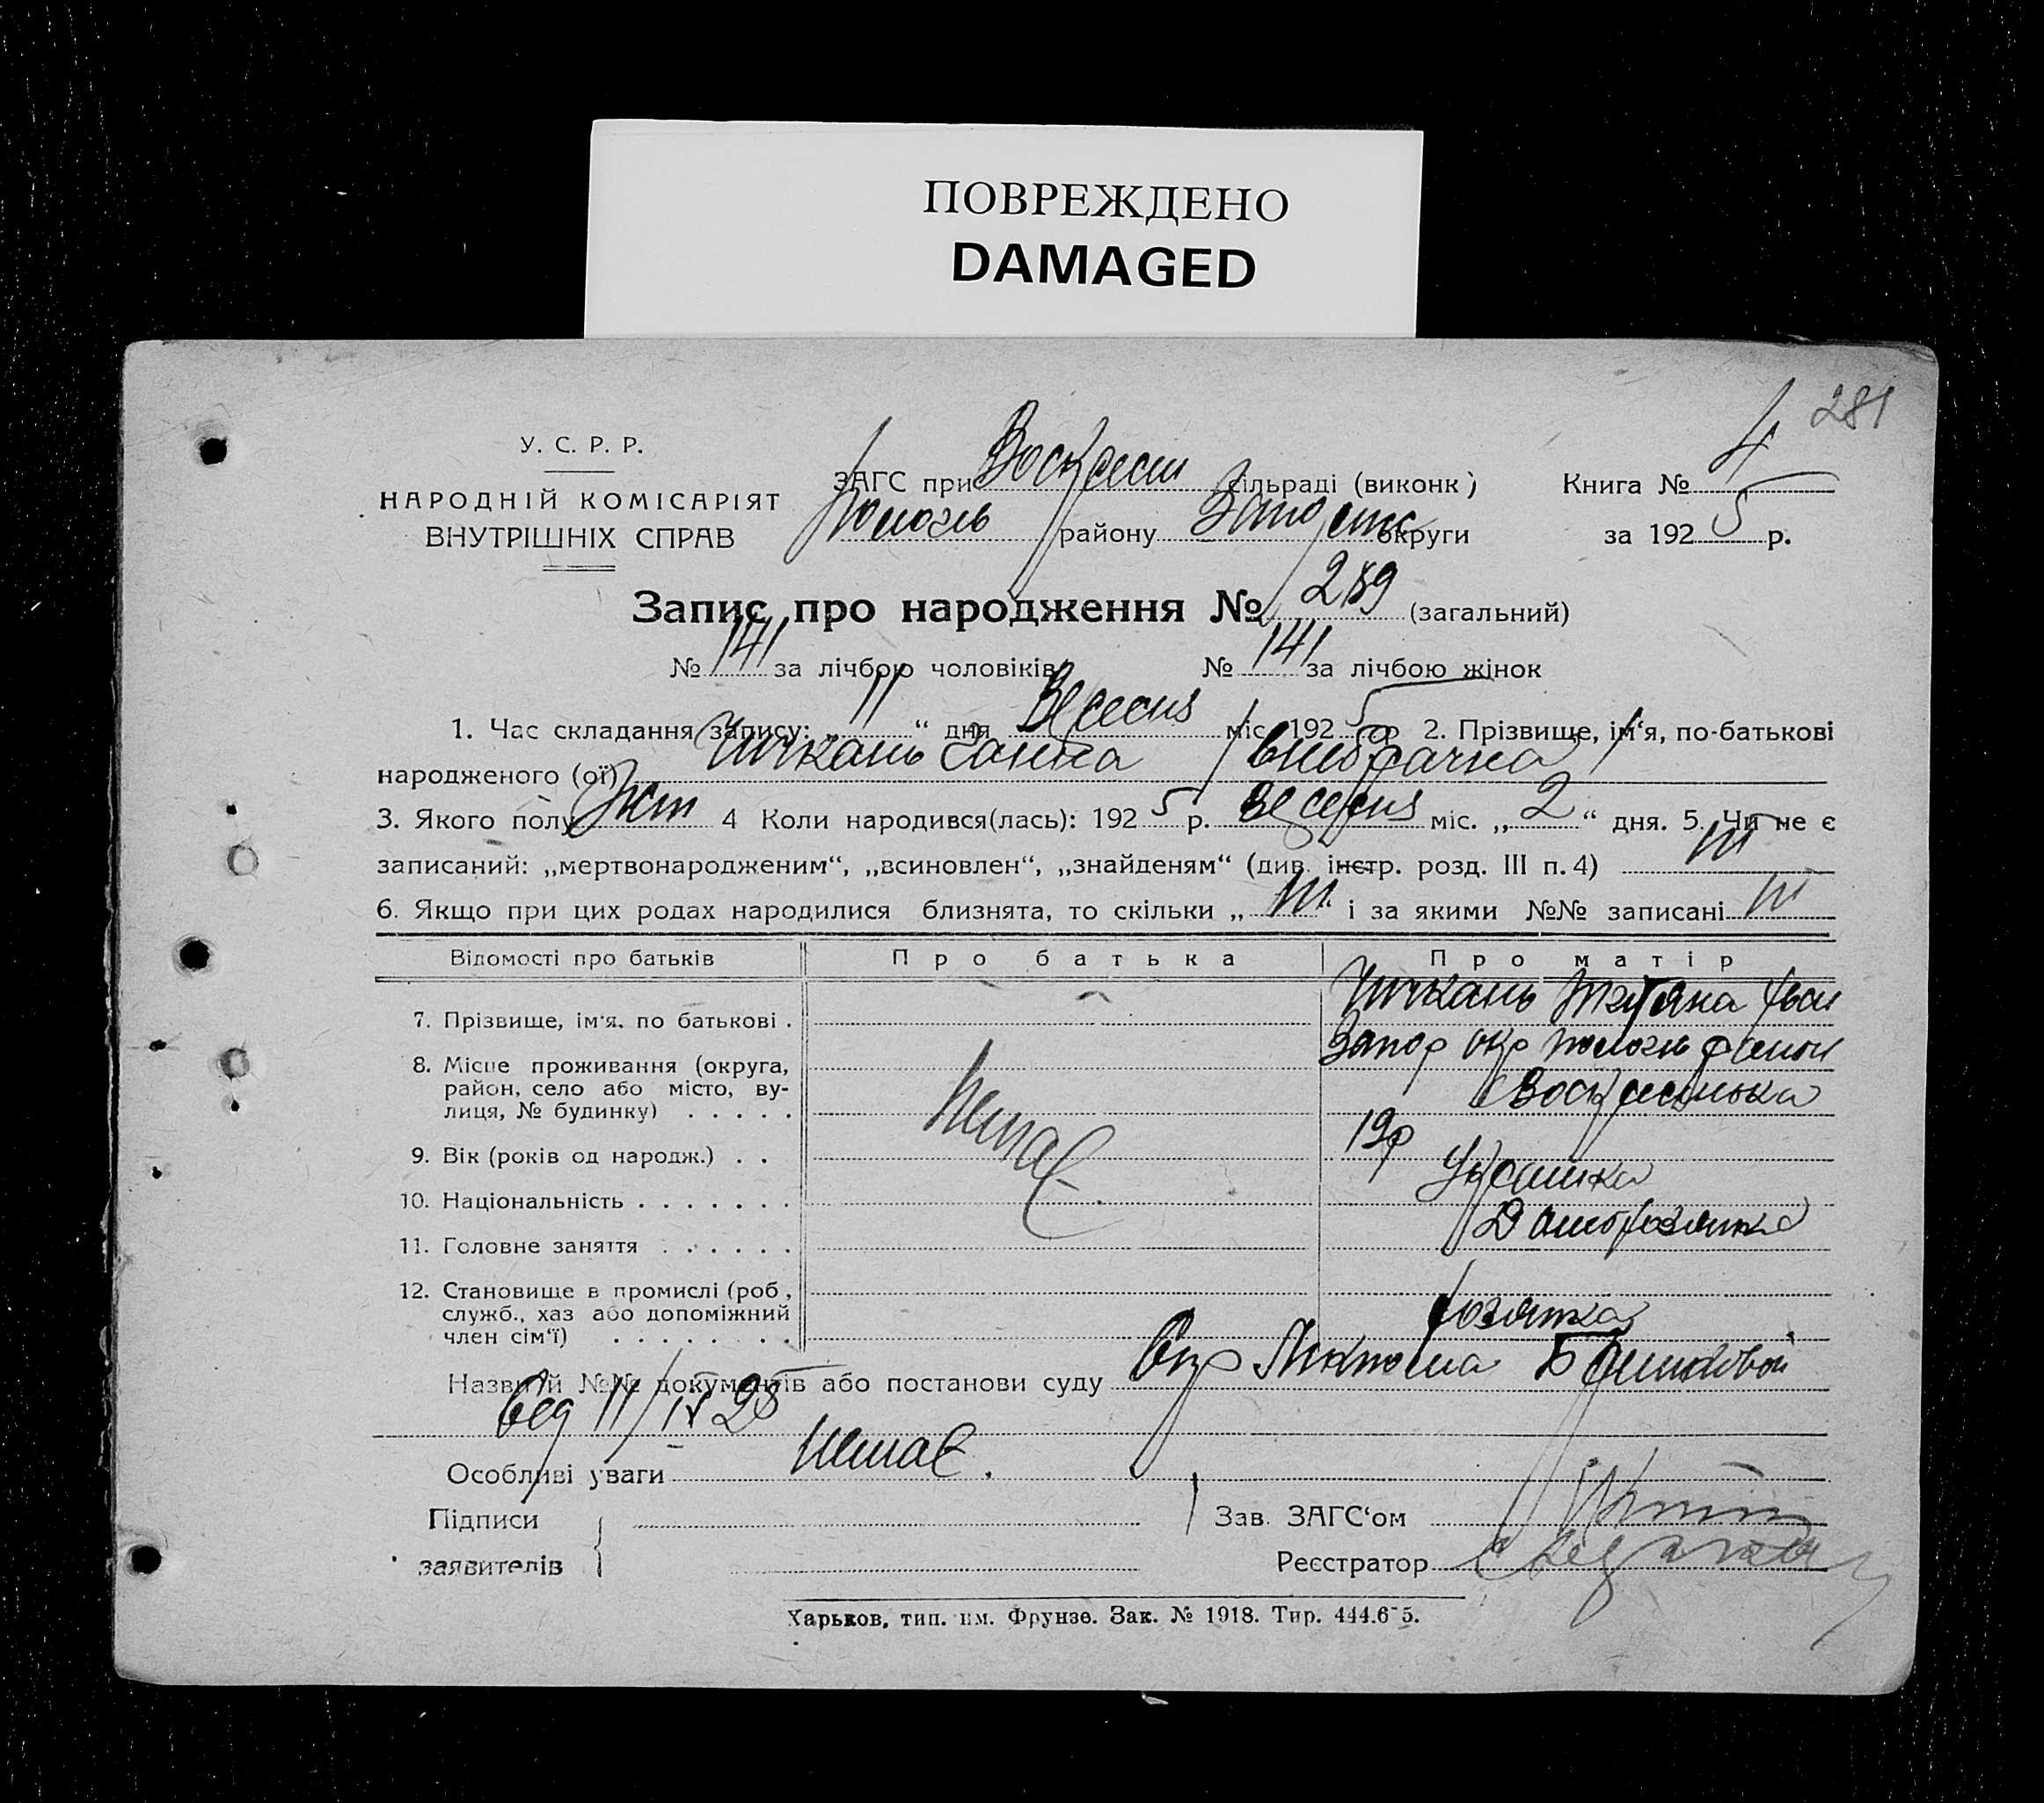 ПОВРЕЖДЕНО
DAMAGED
281
У. С. Р. Р.
НАРОДНІЙ КОМІСАРІЯТ
ВНУТРІШНІХ СПРАВ
ЗАГС при Воскресен сільраді (виконк)
района Запоріжс округи
Книга № 4
за 1925 р.
Запис про народження № 289 (загальний)
№ 141 за лічбою чоловіків № 141 за лічбою жінок
1. Час складання запису: „ 11 “ дня Вересня міс. 1925 р 2. Прізвище, ім‘я, по-батькові
народженого (ої) Чичкань Ганна / внебрачна /
3. Якого полу жін 4 Коли народився(лась): 1925 р. Вересня міс. „ 2 “ дня. 5. Чи не є
записаний: „мертвонародженим“, „всиновлен“, „знайденям“ (див. інстр. розд. III п. 4) ні
6. Якщо при цих родах народилися близнята, то скільки „ ні “ і за якими №№ записані ні
Відомості про батьків Про батька Про матір
7. Прізвище, ім‘я. по батькові . Чичкань Тетяна Іван
8. Місце проживання (округа, Запор окр Пологів район
район, село або місто, ву-
лиця, № будинку) . . . . . Воскресенька
Немає
9. Вік (років од народж.) . . 19р
10. Національність . . . . . . . Українка
11. Головне заняття . . . . . . Домогозяйка
12. Становище в промислі (роб.,
служб., хаз або допоміжний
член сім‘ї) . . . . . . . гозяйка
Назви й №№ документів або постанови суду
від 11/IX 25
Особливі уваги Немає.
Підписи
заявителів
Зав. ЗАГС‘ом
Реєстратор
Харьков, тип. им. Фрунзе. Зак. № 1918. Тир. 444.6-5.